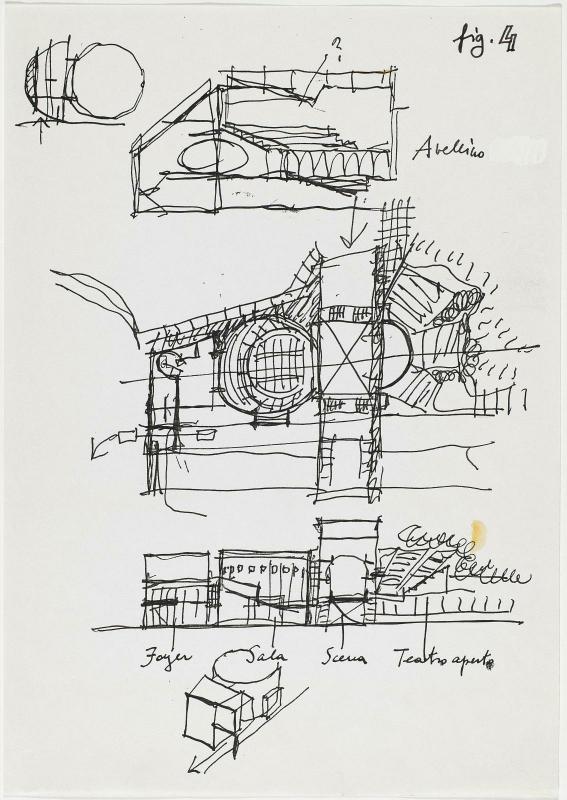 fig. 4
?
Avellino
Foyer Sala Scena Teatro aperto